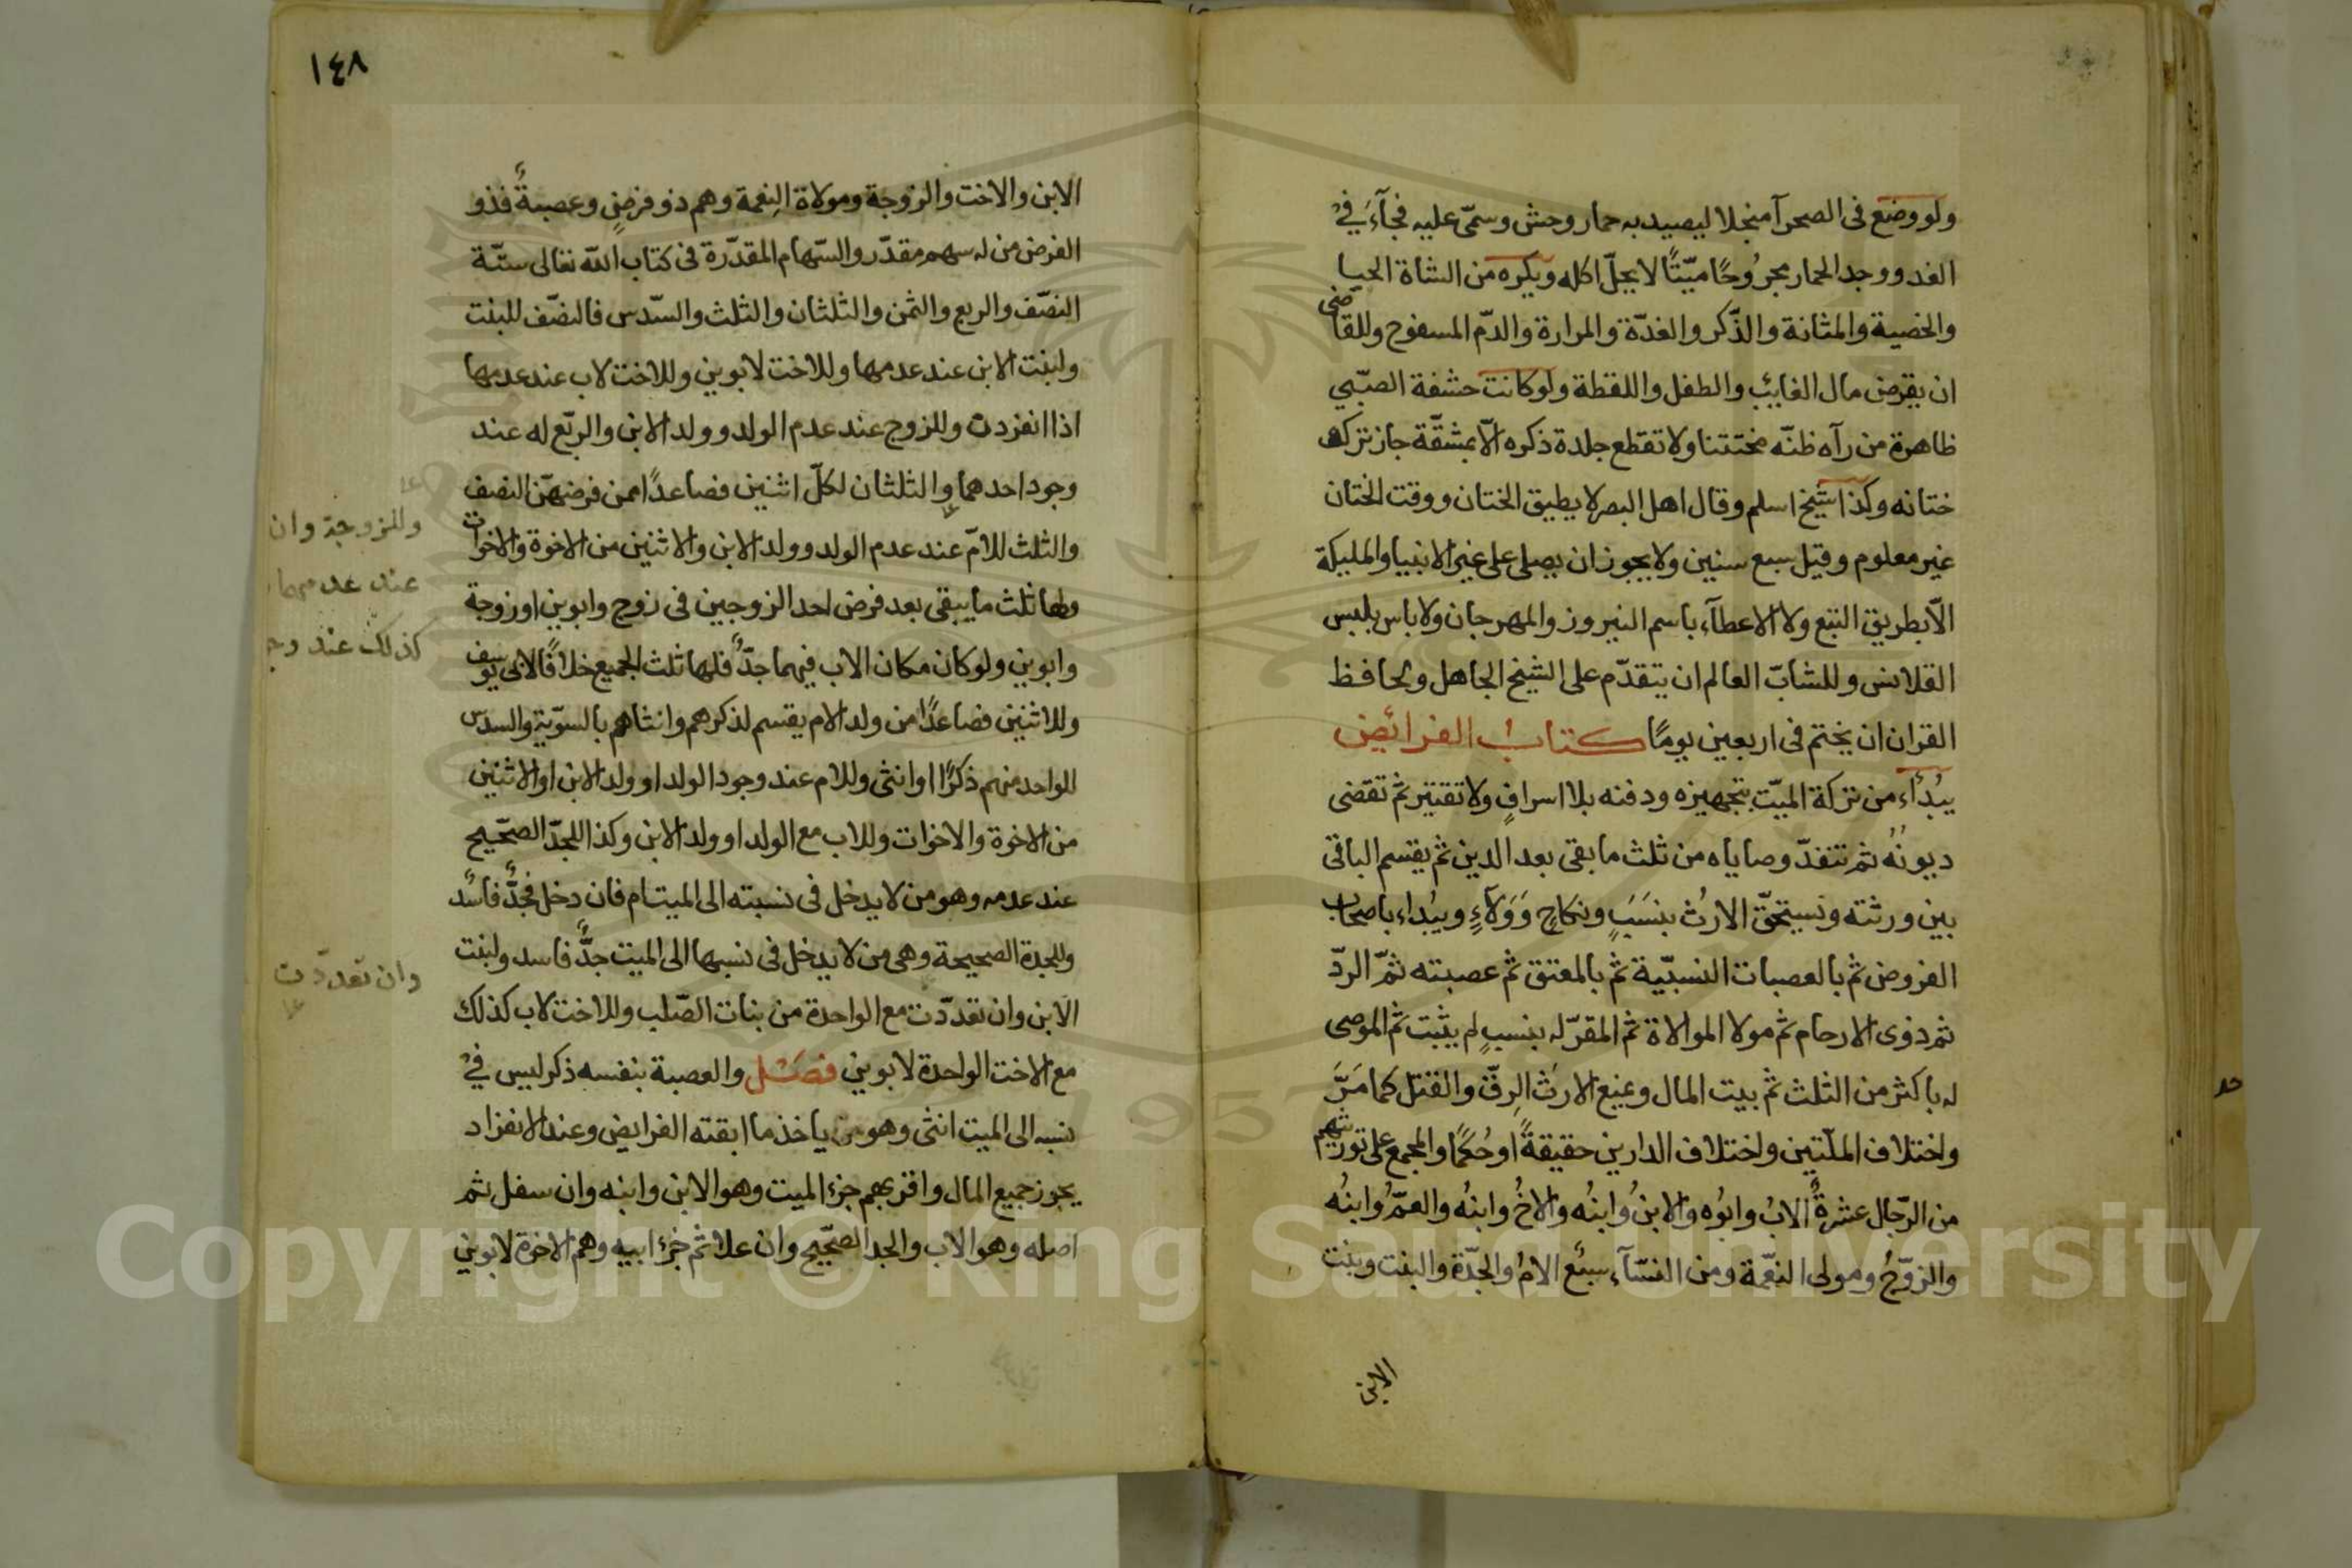 ولو وضع فى الصحرآ منجلا ليصيد به حمار وحش وسمّى عليه فجآءَ فىْ
الغد ووجد الحمار مجرُوحًا ميّتًا لا يحلّ اكله ويكره من الشاة الحيا
والخصية والمثانة والذّكر والغدّة والمرارة والدّم المسفوح وللقاضى
ان يقرض مال الغايب والطفل واللقطة ولو كانت حشفة الصبّي
ظاهرة من رآه ظنّه مختتنا ولا تقطع جلدة ذكره الّا بمشقّة جاز ترك
ختانه وكذا شيخ اسلم وقال اهل البصر لا يطيق الختان ووقت الختان
غير معلوم وقيل سبع سنين ولا يجوز ان يصلى على غير الانبيا والمليكة
الّا بطريق التبع ولا الاعطآء باسم النيروز والمهرجان ولا باس بلبس
القلانس وللشابّ العالم ان يتقدّم على الشيخ الجاهل ولحافظ
القران ان يختم فى اربعين يومًا كتابُ الفرائض
يبُدأء من تركة الميّت بتجهيزه ودفنه بلا اسرافٍ ولا تقتير ثم تقضى
ديونُهُ ثم تنفذّ وصاياه من ثلث ما بقى بعد الدين ثم يقسم الباقى
بين ورثته ونستحقّ الارث بنسَبٍ ونكاحٍ وَوَلآءٍ ويبُداء باصحاب
الفروض ثم بالعصبات النسبيّة ثم بالمعتق ثم عصبته ثمّ الردّ
ثم ذوى الارحام ثم مولا الموالاة ثم المقرّ له بنسبٍ لم يثبت ثم الموصى
له باكثر من الثلث ثم بيت المال ويمنع الارث الرِقّ والقتل كما مَرَّ
واختلاف الملّتين واختلاف الدارين حقيقةً او حُكمًا والمجمع على توريثهم
من الرّجال عشرةٌ الابُ وابُوه والابنُ وابنُه والاخُ وابنُه والعمّ وابنُه
والزوّجُ ومولى النعّمة ومن النسّآء سبْع الامُ والجدّة والبنت وبنت
الابن
١٤٨
الابن والاخت والزوجة ومولاة النِعمة وهم ذو فرضٍ وعصبةٌ فذو
الفرض من له سهم مقدّر والسّهام المقدّرة فى كتاب اللّه تعالى ستّة
النصّف والربع والثمن والثلثان والثلث والسّدس فالنصّف للبنت
ولبنت الابن عند عدمها وللاخت لابوين وللاخت لاب عند عدمها
اذا انفردت وللزوج عند عدم الولد وولد الابن والربّع له عند
وجود احدهما والثلثان لكلّ اثنين فصاعدًا ممن فرضهنّ النصف
والثلث للامّ عند عدم الولد وولد الابن والاثنين من الاخوة والاخوات
ولها ثلث ما يبقى بعد فرض احد الزوجين فى زوج وابوين او زوجة
وابوين ولو كان مكان الاب فيهما جدٌّ فلها ثلث الجميع خلافًا لابى يوسف
وللاثنين فصاعدًا من ولد الام يقسم لذكرهم وانثاهم بالسوّية والسدس
للواحد منهم ذكرًا او انثى وللام عند وجود الولد او ولد الابن او الاثنين
من الاخوة والاخوات وللاب مع الولد او ولد الابن وكذا للجدّ الصحّيح
عند عدمه وهو من لا يدخل فى نسبته الى الميت ام فان دخل فجدٌّ فاسُد
وللجدة الصحيحة وهى من لا يدخل فى نسبها الى الميت جدٌّ فاسد ولبنت
الابن وان تعدّدت مع الواحدة من بنات الصّلب وللاخت لاب كذلك
مع الاخت الواحدة لابوين فصَل والعصبة بنفسه ذكر ليس فىْ
نسبه الى الميت انثى وهو من ياخذ ما ابقته الفرايض وعند الانفراد
يحوز جميع المال واقربهم جزء الميت وهو الابن وابنه وان سفل ثم
اصله وهو الاب والجد الصحّيح وان علا ثم جزء ابيه وهم الاخوة لابوين
وللزوجة وان
عند عدمهما
كذلك عند وج
وان تعددت
Copyright © King Saud University
1957